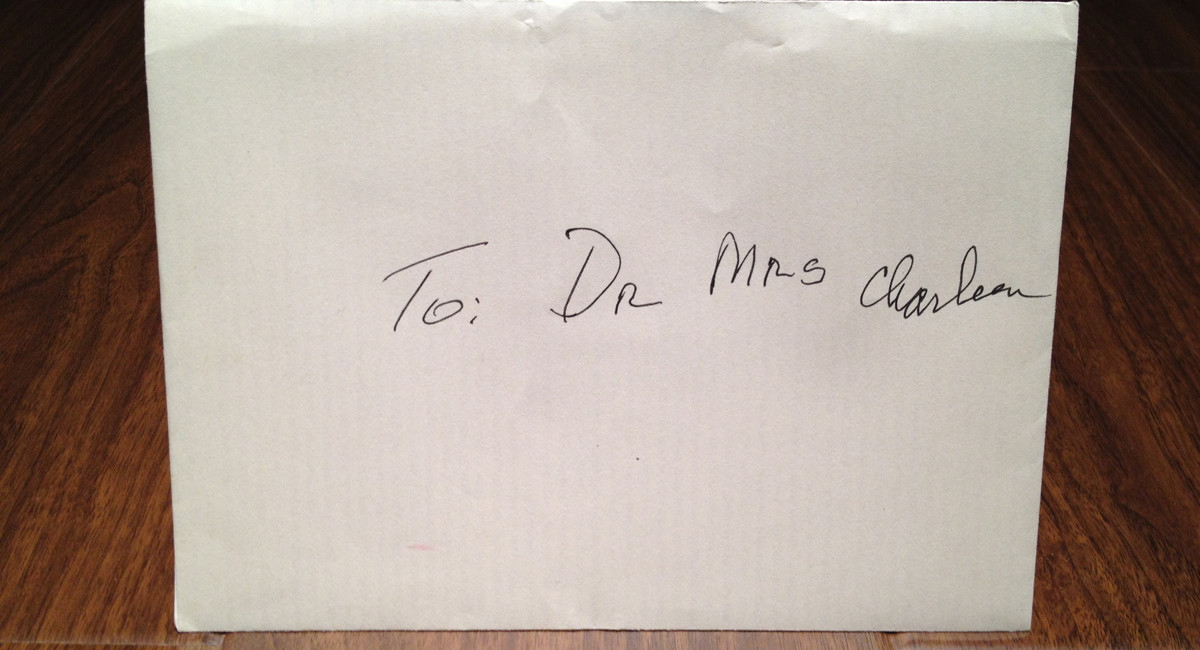 To: Dr Mrs Charleen